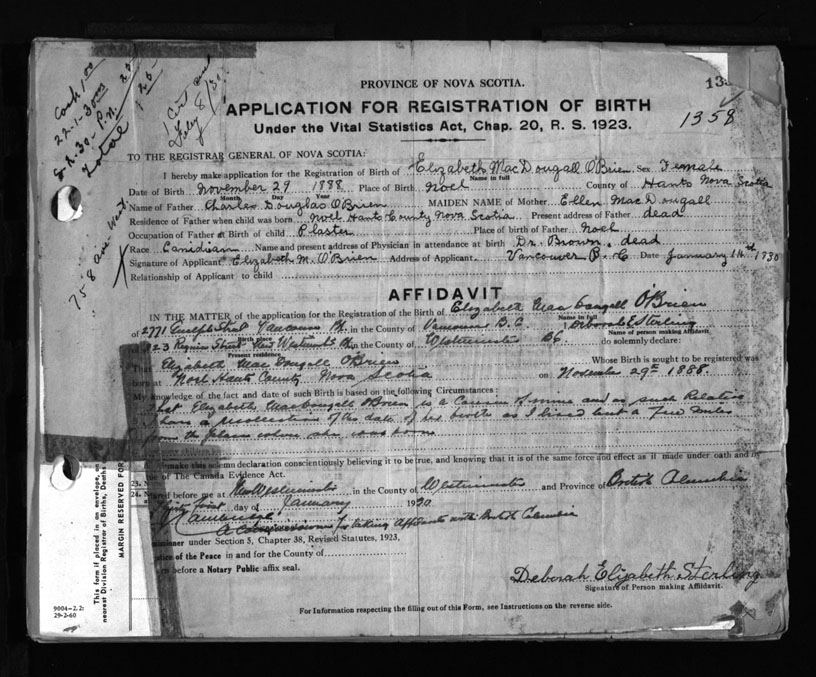 Cash 1.00
22-1-30
8.2.30 - P.N. 25
Total 1.25
1 Cert and
Foley 8/30
758
PROVINCE OF NOVA SCOTIA.
APPLICATION FOR REGISTRATION OF BIRTH
1358
Under the Vital Statistics Act, Chap. 20, R. S. 1923.
TO THE REGISTRAR GENERAL OF NOVA SCOTIA:
I hereby make application for the Registration of Birth of Elizabeth MacDougall O'Brien Sex Female
Name in full
Date of Birth November 29 1888 Place of Birth Noel County of Hants Nova Scotia
Month Day Year
Name of Father Charles Douglas O'Brien MAIDEN NAME of Mother Ellen MacDougall
Residence of Father when child was born Noel Hants County Nova Scotia Present address of Father dead
Occupation of Father at Birth of child Plaster Place of birth of Father Noel
Race Canidian Name and present address of Physician in attendance at birth Dr. Brown. dead
Signature of Applicant Elizabeth M. O'Brien Address of Applicant Vancouver B. C Date January 1930
Relationship of Applicant to child
AFFIDAVIT
IN THE MATTER of the application for the Registration of the Birth of Elizabeth MacDougall O'Brien
Name in full
of 2771 Guelph Street Vancouver in the County of Vancouver B.C. Deborah E Sterling
Birth place Name of person making Affidavit.
Street New Westminster in the County of Westminster BC. do solemnly declare:
Present residence
That Elizabeth MacDougall O'Brien Whose Birth is sought to be registered was
born at Noel Hants County Nova Scotia on November 29th 1888.
My knowledge of the fact and date of such Birth is based on the following Circumstances:
That Elizabeth MacDougall O'Brien is a Cousin of mine and as such Relative
I have a recollection of the date of her birth as I lived but a few miles
from the place where she was born
make this solemn declaration conscientiously believing it to be true, and knowing that it is of the same force and effect as if made under oath and by
of The Canada Evidence Act.
23.
24. before me at New Westminster in the County of Westminster and Province of British Columbia
thirty first day of January 1930
A Commissioner for taking Affidavits within British Columbia
under Section 5, Chapter 38, Revised Statutes, 1923,
of the Peace in and for the County of
before a Notary Public affix seal.
Deborah Elizabeth Sterling
Signature of Person making Affidavit.
For Information respecting the filling out of this Form, see Instructions on the reverse side.
This form if placed in an envelope, an
nearest Division Registrar of Births, Deaths
MARGIN RESERVED FOR
9004-2.2:
29-2-60